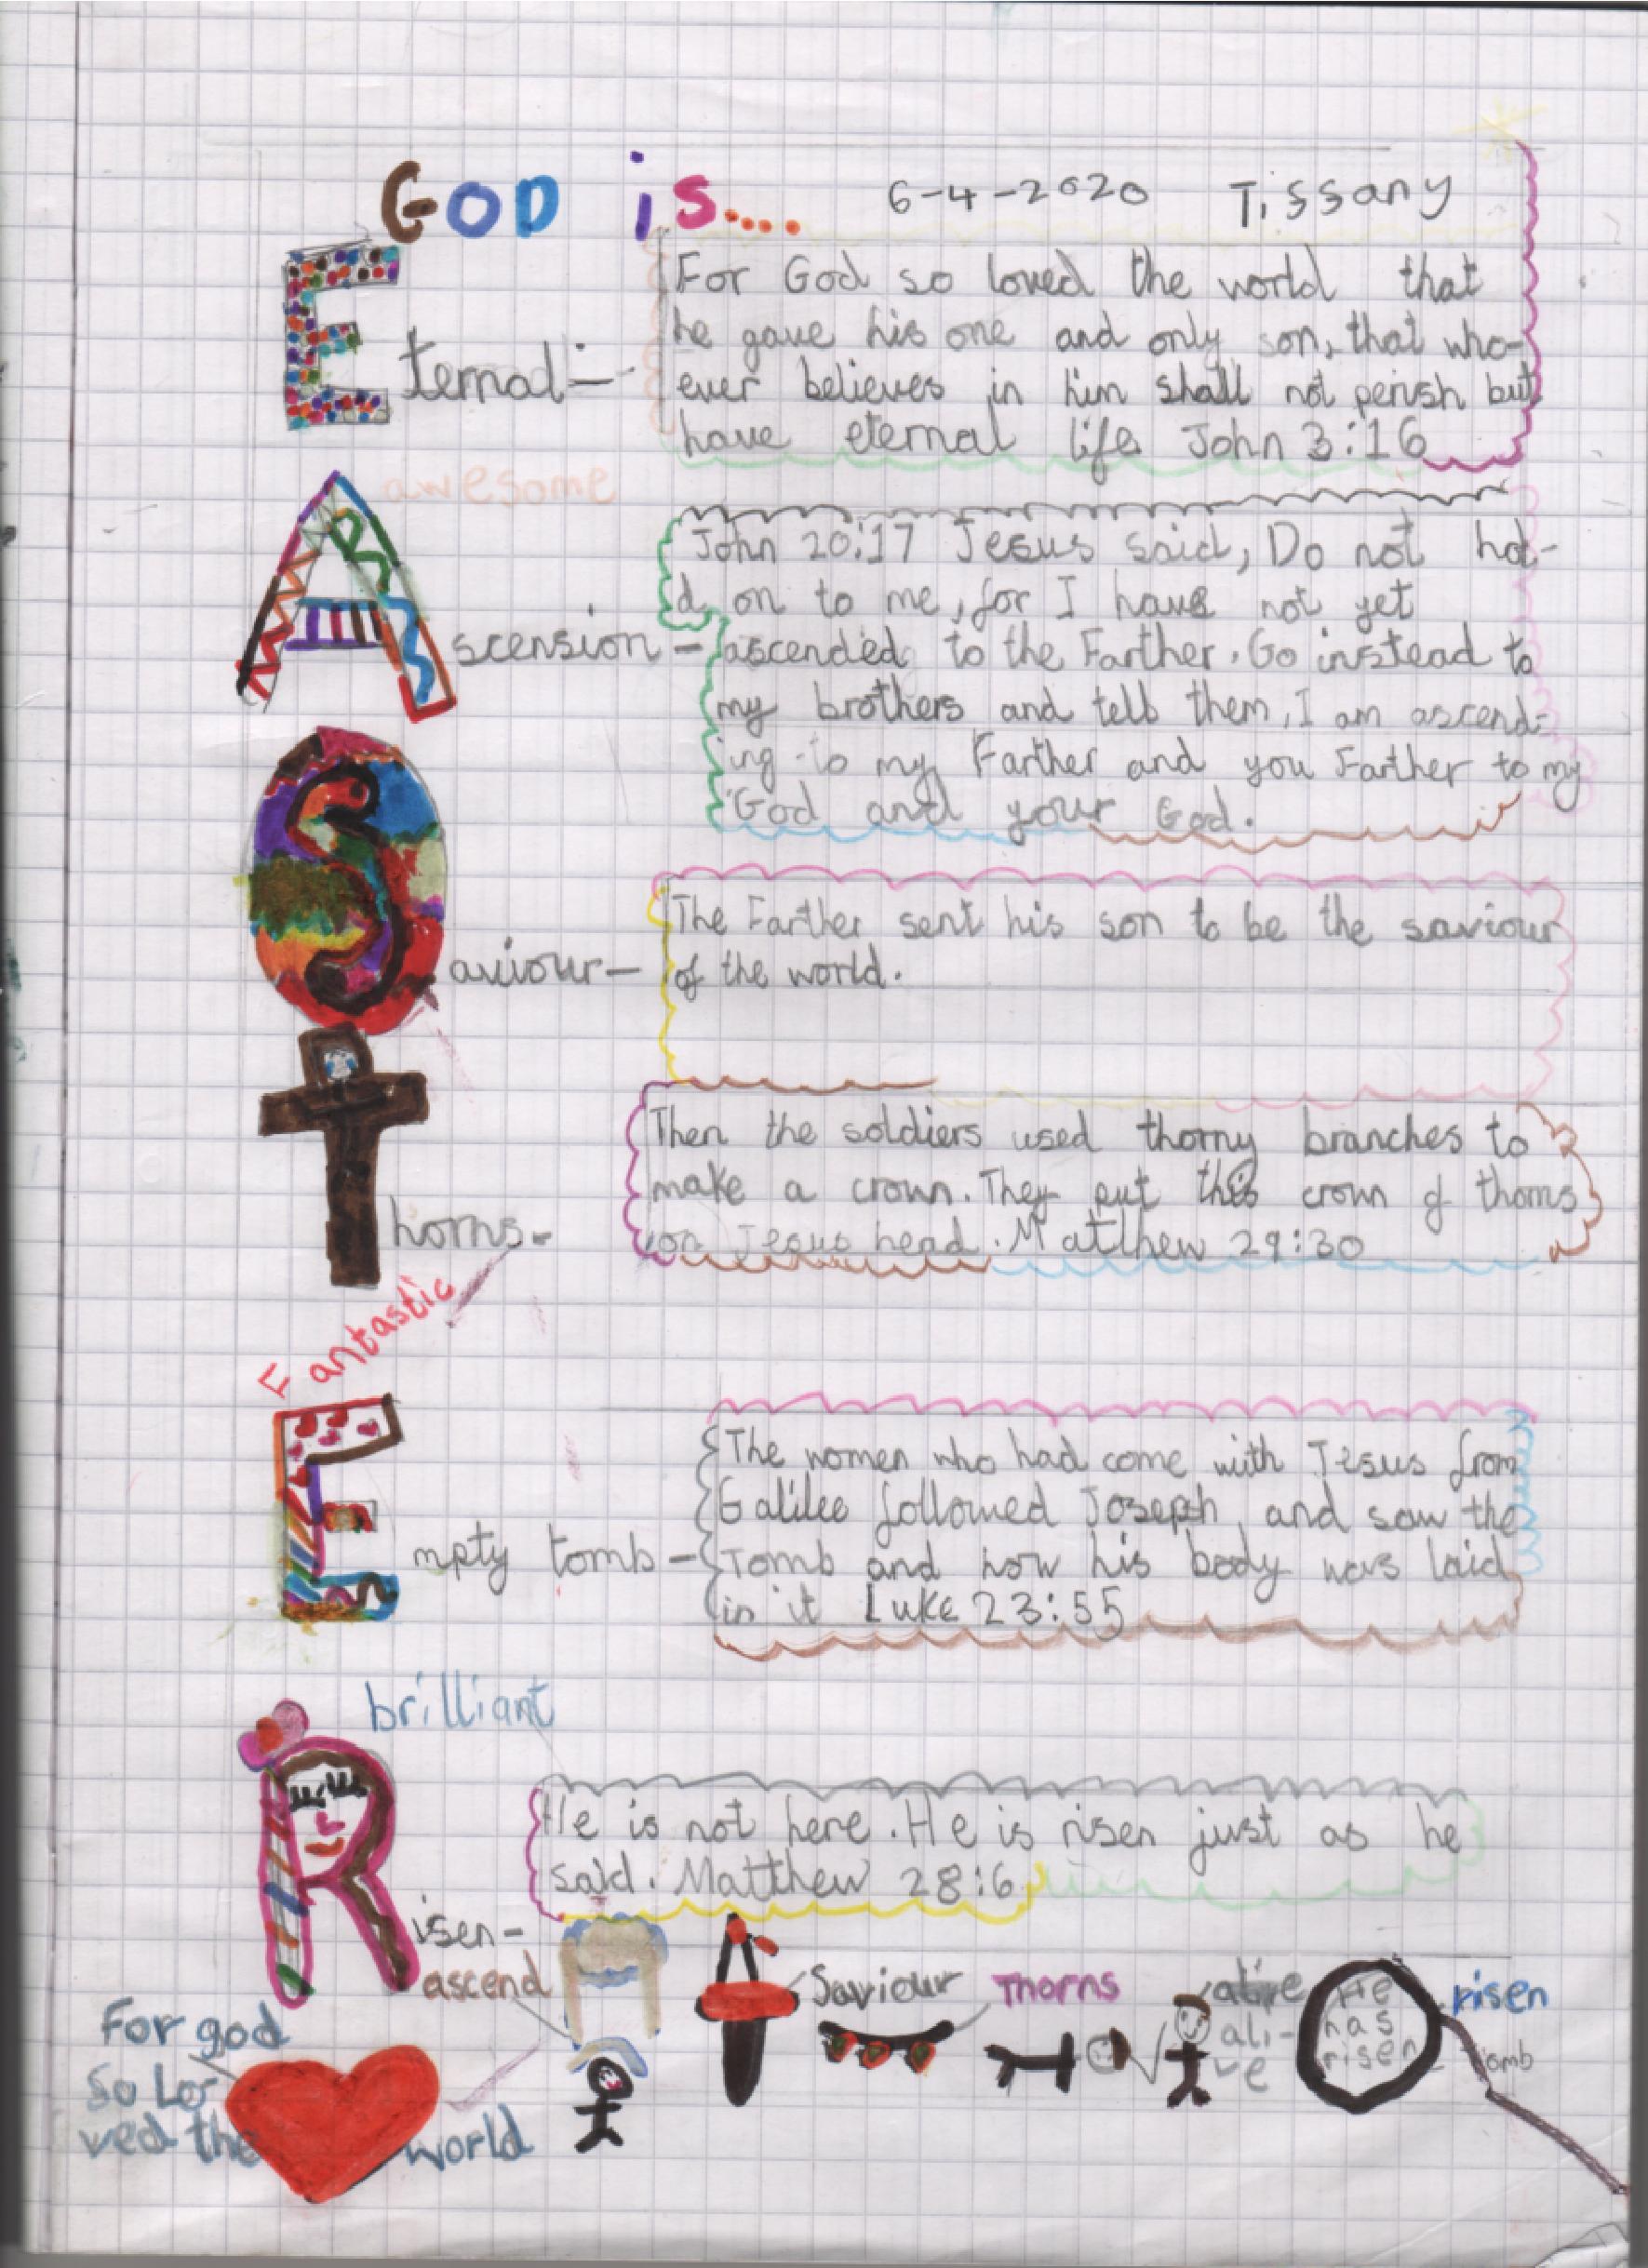 GOD is.... 6-4-2020 Tissany
Eternal:-
For God so loved the world that
he gave his one and only son, that who-
ever believes in him shall not perish but
have eternal life John 3:16
awesome
Ascension-
John 20:17 Jesus said, Do not hol-
d on to me, for I have not yet
ascended to the Farther. Go instead to
my brothers and tell them, I am ascend-
ing to my Farther and you Farther to my
God and your God.
Saviour-
The Farther sent his son to be the saviour
of the world.
Thorns-
Then the soldiers used thorny branches to
make a crown. They put this crown of thorns
on Jesus head. Matthew 29:30
Fantastic
Empty tomb-
The women who had come with Jesus from
Galilee followed Joseph and saw the
Tomb and how his body was laid
in it Luke 23:55
brilliant
Risen-
He is not here. He is risen just as he
said. Matthew 28:6
ascend
Saviour
Thorns
alive
ali-
ve
He
has
risen
risen
Tomb
For god
so Lo-
ved the
world